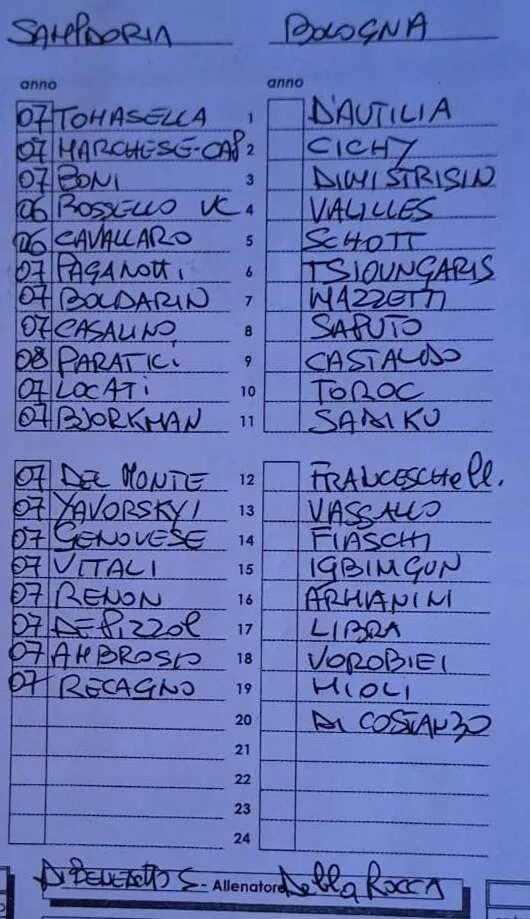 SAMPDORIA BOLOGNA
anno anno
07 TOMASELLA 1 D'AUTILIA
07 MARCHESE-CAP 2 CICHY
07 BONI 3 DIMISTRISIN
06 ROSSELLO VC 4 VALILLES
06 CAVALLARO 5 SCHOTT
07 PAGANOTTI 6 TSIOUNGARIS
07 BOLDARIN 7 MAZZETTI
07 CASALINO 8 SAPUTO
08 PARATICI 9 CASTALDO
07 LOCATI 10 TOROC
07 BJORKMAN 11 SADIKU
07 DEL MONTE 12 FRANCESCHELL.
07 YAVORSKYI 13 VASSALLO
07 GENOVESE 14 FIASCHI
07 VITALI 15 IGBIMGUN
07 RENON 16 ARMANINI
07 DE PIZZOL 17 LIBRA
07 AMBROSIO 18 VOROBIEI
07 RECAGNO 19 MIOLI
20 DI COSTANZO
21
22
23
24
DI BENEDETTO S - Allenatore Della Rocca